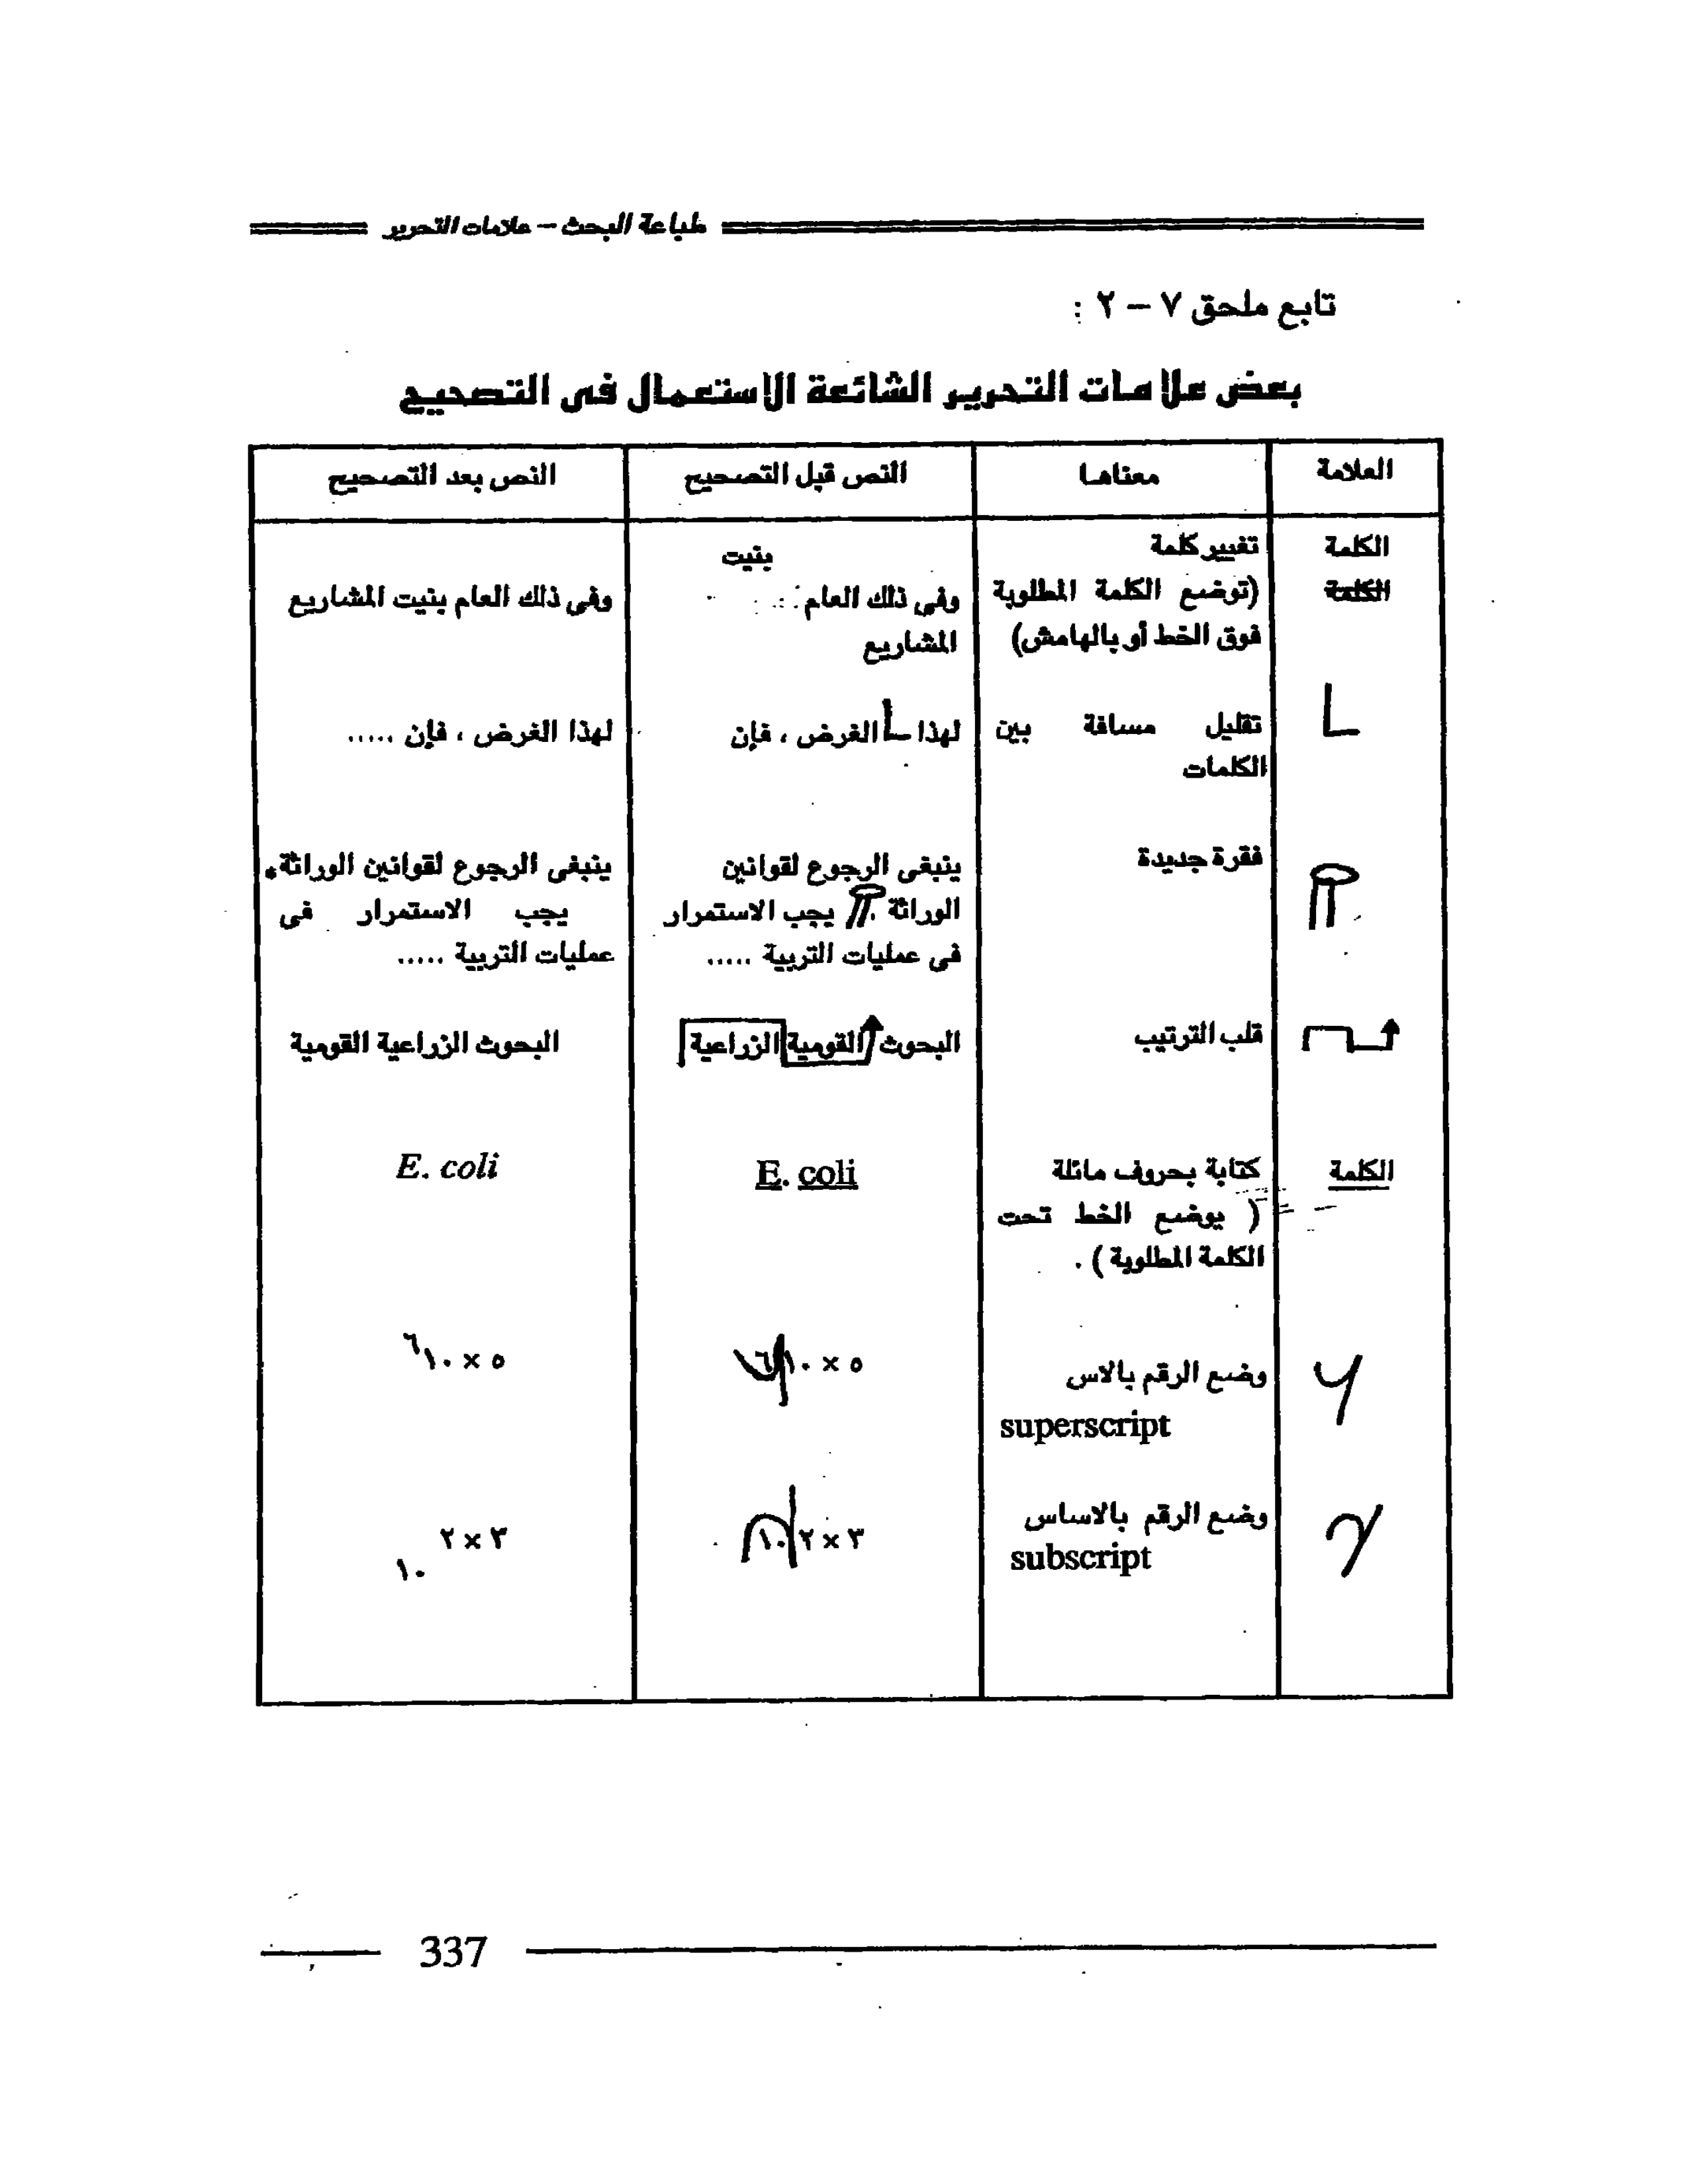 طباعة البحث – علامات التحرير
تابع ملحق ٧ – ٢ :
بعض علامات التحرير الشائعة الاستعمال فى التصحيح
العلامة
معناها
النص قبل التصحيح
النص بعد التصحيح
الكلمة
الكلمة
تغيير كلمة
(توضع الكلمة المطلوبة
فوق الخط أو بالهامش)
بنيت
وفى ذلك العام
المشاريع
وفى ذلك العام بنيت المشاريع
تقليل مسافة بين
الكلمات
لهذا الغرض ، فإن
لهذا الغرض ، فإن .....
فقرة جديدة
ينبغى الرجوع لقوانين
الوراثة . يجب الاستمرار
فى عمليات التربية .....
ينبغى الرجوع لقوانين الوراثة.
يجب الاستمرار فى
عمليات التربية .....
قلب الترتيب
البحوث القومية الزراعية
البحوث الزراعية القومية
الكلمة
كتابة بحروف مائلة
( يوضع الخط تحت
الكلمة المطلوبة ) .
E. coli
E. coli
وضع الرقم بالاس
superscript
٥ × ١٠ ٦
٥ × ١٠٦
وضع الرقم بالاساس
subscript
٣ × ٢ ١٠
٣ × ٢
١٠
337